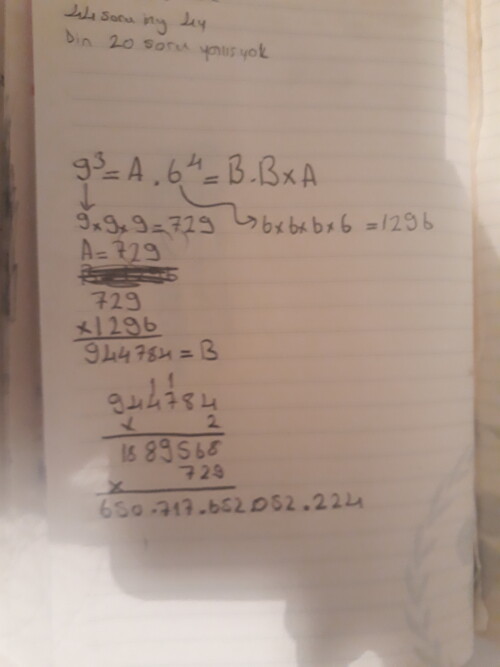 44 soru ing 4y
Din 20 soru yanlış yok
9³ = A . 6⁴ = B . B x A
9 x 9 x 9 = 729 → 6 x 6 x 6 x 6 = 1296
A = 729
729
x 1296
944784 = B
1 1
944784
x 2
1889568
729
x
650.717.652052.224